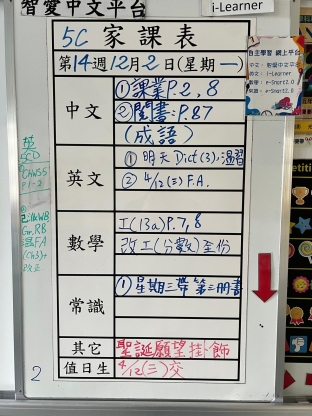 智愛中文平台
i-Learner
5C 家課表
第14週12月2日(星期一)
自主學習 網上平台
中文：智愛中文平台
英文：i-Learner
中文
①課業P.2,8
②閱書：P.87
(成語)
英文
① 明天Dict(3),溫習
② 4/12(三)F.A.
數學
工(13a)P.7,8
改工(分數)至份
常識
①星期三帶第三冊書
其它
聖誕願望掛飾
值日生
4/12(三)交
英
GR.RB
2